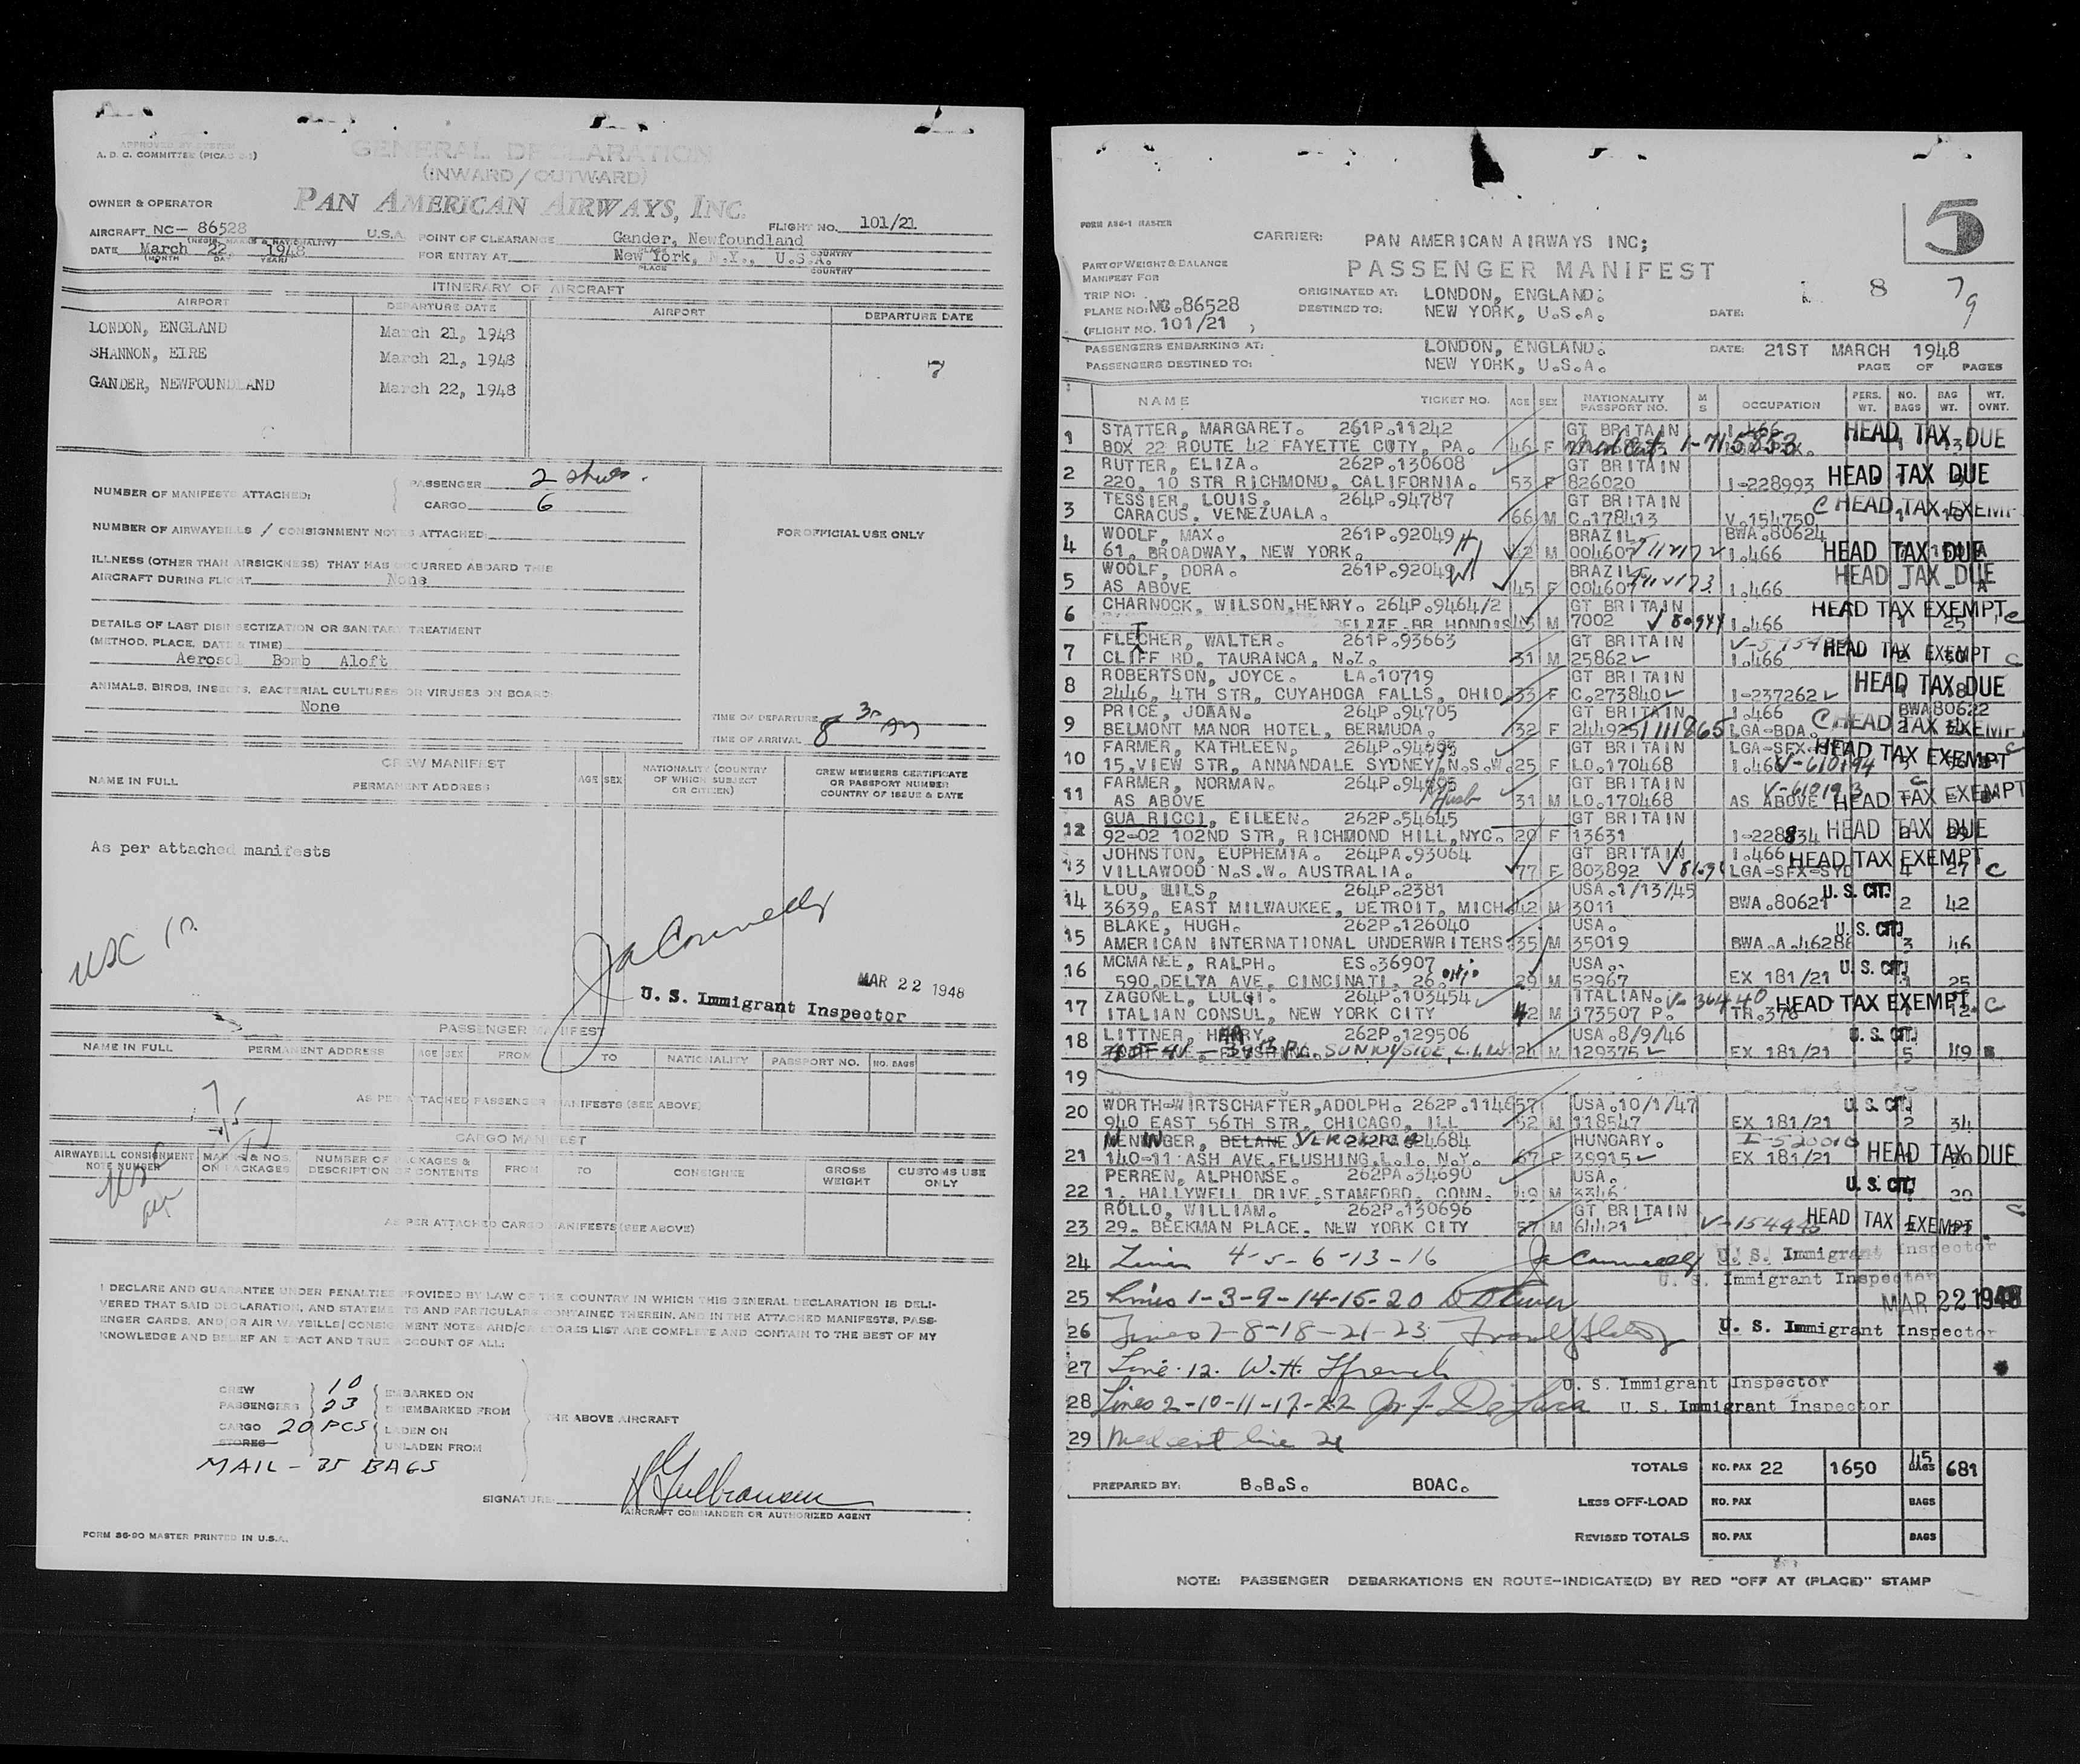 APPROVED BY SYSTEM
A. D. C. COMMITTEE (PICAO
GENERAL DECLARATION
(INWARD/OUTWARD)
PAN AMERICAN AIRWAYS, INC.
OWNER & OPERATOR
AIRCRAFT NC- 86528 U.S.A.
(REGIS. MARKS & NATIONALITY)
FLIGHT NO. 101/21
POINT OF CLEARANCE Gander, Newfoundland
PLACE COUNTRY
DATE March 22, 1948
(MONTH DAY YEAR)
FOR ENTRY AT New York, N.Y., U.S.A.
PLACE COUNTRY
ITINERARY OF AIRCRAFT
AIRPORT DEPARTURE DATE AIRPORT DEPARTURE DATE
LONDON, ENGLAND March 21, 1948
SHANNON, EIRE March 21, 1948
GANDER, NEWFOUNDLAND March 22, 1948
7
NUMBER OF MANIFESTS ATTACHED:
PASSENGER 2
CARGO 6
NUMBER OF AIRWAYBILLS / CONSIGNMENT NOTES ATTACHED
FOR OFFICIAL USE ONLY
ILLNESS (OTHER THAN AIRSICKNESS) THAT HAS OCCURRED ABOARD THE
AIRCRAFT DURING FLIGHT None
DETAILS OF LAST DISINSECTIZATION OR SANITARY TREATMENT
(METHOD, PLACE, DATE & TIME)
Aerosol Bomb Aloft
ANIMALS, BIRDS, INSECTS, BACTERIAL CULTURES OR VIRUSES ON BOARD
None
TIME OF DEPARTURE
TIME OF ARRIVAL
CREW MANIFEST
NAME IN FULL PERMANENT ADDRESS AGE SEX
NATIONALITY (COUNTRY
OF WHICH SUBJECT
OR CITIZEN)
CREW MEMBERS CERTIFICATE
OR PASSPORT NUMBER
COUNTRY OF ISSUE & DATE
As per attached manifests
USC
Ja Connelly
MAR 22 1948
U. S. Immigrant Inspector
PASSENGER MANIFEST
NAME IN FULL PERMANENT ADDRESS AGE SEX FROM TO NATIONALITY PASSPORT NO. NO. BAGS
AS PER ATTACHED PASSENGER MANIFESTS (SEE ABOVE)
CARGO MANIFEST
AIRWAYBILL CONSIGNMENT
NOTE NUMBER
MARKS & NOS.
ON PACKAGES
NUMBER OF PACKAGES &
DESCRIPTION OF CONTENTS
FROM TO CONSIGNEE
GROSS
WEIGHT
CUSTOMS USE
ONLY
AS PER ATTACHED CARGO MANIFESTS (SEE ABOVE)
I DECLARE AND GUARANTEE UNDER PENALTIES PROVIDED BY LAW OF THE COUNTRY IN WHICH THIS GENERAL DECLARATION IS DELI-
VERED THAT SAID DECLARATION, AND STATEMENTS AND PARTICULARS CONTAINED THEREIN, AND IN THE ATTACHED MANIFESTS, PASS-
ENGER CARDS, AND/OR AIR WAYBILLS/CONSIGNMENT NOTES AND/OR STORES LIST ARE COMPLETE AND CONTAIN TO THE BEST OF MY
KNOWLEDGE AND BELIEF AN EXACT AND TRUE ACCOUNT OF ALL:
CREW 10
PASSENGERS 23
CARGO 20 PCS
STORES
MAIL - 35 BAGS
EMBARKED ON
DISEMBARKED FROM
LADEN ON
UNLADEN FROM
THE ABOVE AIRCRAFT
SIGNATURE
AIRCRAFT COMMANDER OR AUTHORIZED AGENT
FORM 36-90 MASTER PRINTED IN U.S.A.
5
FORM A86-1 MASTER
CARRIER: PAN AMERICAN AIRWAYS INC;
PASSENGER MANIFEST
PART OF WEIGHT & BALANCE
MANIFEST FOR
TRIP NO:
PLANE NO: NC.86528
(FLIGHT NO. 101/21 )
ORIGINATED AT: LONDON, ENGLAND:
DESTINED TO: NEW YORK, U.S.A. DATE:
8 79
PASSENGERS EMBARKING AT: LONDON, ENGLAND: DATE: 21ST MARCH 1948
PASSENGERS DESTINED TO: NEW YORK, U.S.A. PAGE OF PAGES
NAME TICKET NO. AGE SEX NATIONALITY PASSPORT NO. M S OCCUPATION PERS. WT. NO. BAGS BAG WT. WT. OVNT.
1 STATTER, MARGARET. 261P.11242 GT BRITAIN I.466 HEAD TAX DUE
BOX 22 ROUTE 42 FAYETTE CUTY, PA. 46 F 1-715853
2 RUTTER, ELIZA. 262P.130608 GT BRITAIN HEAD TAX DUE
220, 10 STR RICHMOND, CALIFORNIA. 53 F 826020 I-228993
3 TESSIER, LOUIS. 264P.94787 GT BRITAIN C HEAD TAX EXEMPT
CARACUS, VENEZUALA. 66 M C.178413 V.154750
4 WOOLF, MAX. 261P.92049 H BRAZIL BWA.80624 HEAD TAX DUE
61, BROADWAY, NEW YORK. M 004607 I.466
5 WOOLF, DORA. 261P.92049 W BRAZIL HEAD TAX DUE
AS ABOVE 45 F 004607 I.466
6 CHARNOCK, WILSON,HENRY. 264P.9464/2 GT BRITAIN HEAD TAX EXEMPT C
BELIZE.BR HONDIS M 7002 I.466
7 FLECHER, WALTER. 261P.93663 GT BRITAIN HEAD TAX EXEMPT C
CLIFF RD, TAURANCA, N.Z. 31 M 25862 I.466
8 ROBERTSON, JOYCE. LA.10719 GT BRITAIN HEAD TAX DUE
2446, 4TH STR, CUYAHOGA FALLS, OHIO 33 F C.273840 I-237262
9 PRICE, JOHAN. 264P.94705 GT BRITAIN I.466 BWA80622 C HEAD TAX EXEMPT
BELMONT MANOR HOTEL, BERMUDA. 32 F 244925 1111865 LGA-BDA.
10 FARMER, KATHLEEN. GT BRITAIN HEAD TAX EXEMPT C
15,VIEW STR, ANNANDALE SYDNEY,N.S.W. 25 F LO.170468 V-610194
11 FARMER, NORMAN. Husb GT BRITAIN HEAD TAX EXEMPT
AS ABOVE 31 M LO.170468 AS ABOVE
12 GUA RICCI, EILEEN. 262P.54645 GT BRITAIN HEAD TAX DUE
92-02 102ND STR, RICHMOND HILL,NYC. 20 F 13631 I-228834
13 JOHNSTON, EUPHEMIA. 264PA.93064 GT BRITAIN I.466 HEAD TAX EXEMPT
VILLAWOOD N.S.W. AUSTRALIA. 77 F 803892 LGA-SFX-SYD 4 27 C
14 LOU, WILS, 264P.2381 USA.1/13/45 U. S. CIT.
3639, EAST MILWAUKEE, DETROIT, MICH 42 M 3011 BWA.80621 2 42
15 BLAKE, HUGH. 262P.126040 USA. U. S. CIT.
AMERICAN INTERNATIONAL UNDERWRITERS. 35 M 35019 BWA.A.46286 3 46
16 MCMANEE, RALPH. ES.36907 USA. U. S. CIT.
590,DELTA AVE, CINCINATI, 26. Ohio 29 M 52967 EX 181/21 25
17 ZAGONEL, LULGI. 264P.103454 ITALIAN. HEAD TAX EXEMPT C
ITALIAN CONSUL, NEW YORK CITY 42 M 173507 P. TR.376 12
18 LITTNER, HARRY. 262P.129506 USA.8/9/46 U. S. CIT.
SUNNYSIDE, L.I. 24 M 129375 EX 181/21 5 49
19
20 WORTH-WIRTSCHAFTER,ADOLPH. 262P.114657 USA.10/1/47 U. S. CIT.
940 EAST 56TH STR, CHICAGO, ILL 52 M 118547 EX 181/21 2 34
21 MENINGER, HUNGARY. HEAD TAX DUE
140-11 ASH AVE.FLUSHING.L.I. N.Y. 67 F 39915 EX 181/21
22 PERREN, ALPHONSE. 262PA.34690 USA. U. S. CIT.
1. HALLYWELL DRIVE.STAMFORD. CONN. 49 M 3346 20
23 ROLLO, WILLIAM. 262P.130696 GT BRITAIN HEAD TAX EXEMPT C
29. BEEKMAN PLACE. NEW YORK CITY 57 M 64421
24 Lines 4-5-6-13-16 Ja Connelly U. S. Immigrant Inspector
U. S. Immigrant Inspector
25 Lines 1-3-9-14-15-20 MAR 22 1948
26 Lines 7-8-18-21-23 U. S. Immigrant Inspector
27 Line 12. W.H. Ffrench
U. S. Immigrant Inspector
28 Lines 2-10-11-17-22 J. F. De Luca U. S. Immigrant Inspector
29 Med cert line 21
TOTALS NO. PAX 22 1650 45 BAGS 681
PREPARED BY: B.B.S. BOAC.
LESS OFF-LOAD NO. PAX BAGS
REVISED TOTALS NO. PAX BAGS
NOTE: PASSENGER DEBARKATIONS EN ROUTE-INDICATE(D) BY RED "OFF AT (PLACE)" STAMP